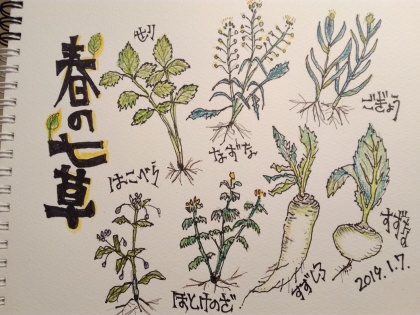 春の七草
せり
なずな
ごぎょう
はこべら
ほとけのざ
すずしろ
すずな
2019.1.7.